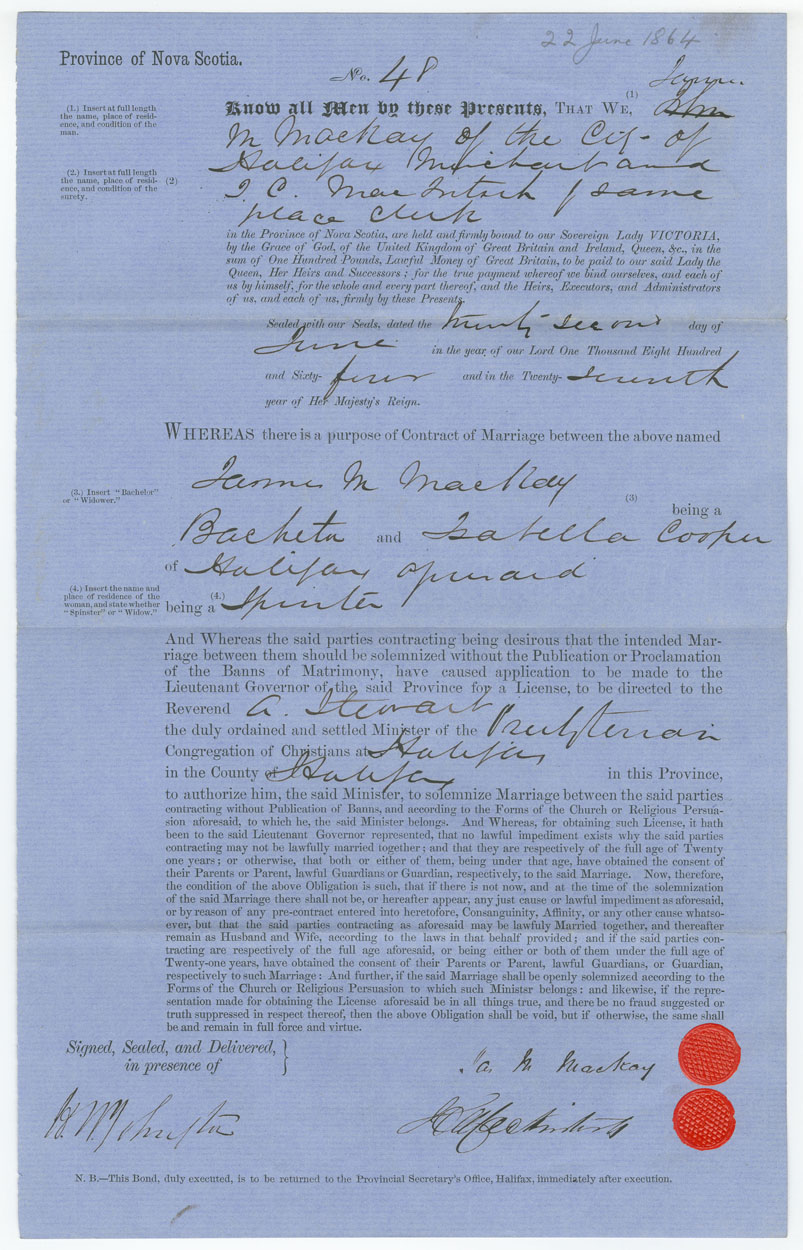 22 June 1864
Province of Nova Scotia.
No. 48
(1.) Insert at full length
the name, place of resid-
ence, and condition of the
man.
James
Know all Men by these Presents, THAT WE, (1)
M Mackay of the City of
Halifax Merchant and
(2.) Insert at full length
the name, place of resid-
ence, and condition of the
surety.
(2) J. C. MacIntosh of same
place Clerk
in the Province of Nova Scotia, are held and firmly bound to our Sovereign Lady VICTORIA,
by the Grace of God, of the United Kingdom of Great Britain and Ireland, Queen, &c., in the
sum of One Hundred Pounds, Lawful Money of Great Britain, to be paid to our said Lady the
Queen, Her Heirs and Successors; for the true payment whereof we bind ourselves, and each of
us by himself, for the whole and every part thereof, and the Heirs, Executors, and Administrators
of us, and each of us, firmly by these Presents.
Sealed with our Seals, dated the twenty second day of
June in the year of our Lord One Thousand Eight Hundred
and Sixty- four and in the Twenty- seventh
year of Her Majesty's Reign.
WHEREAS there is a purpose of Contract of Marriage between the above named
(3.) Insert "Bachelor"
or "Widower."
James M Mackay (3) being a
Bachelor and Isabella Cooper
of Halifax aforesaid
(4.) Insert the name and
place of residence of the
woman, and state whether
"Spinster" or "Widow."
being a (4.) Spinster
And Whereas the said parties contracting being desirous that the intended Mar-
riage between them should be solemnized without the Publication or Proclamation
of the Banns of Matrimony, have caused application to be made to the
Lieutenant Governor of the said Province for a License, to be directed to the
Reverend A. Stewart
the duly ordained and settled Minister of the Presbyterian
Congregation of Christians at Halifax
in the County of Halifax in this Province,
to authorize him, the said Minister, to solemnize Marriage between the said parties
contracting without Publication of Banns, and according to the Forms of the Church or Religious Persua-
sion aforesaid, to which he, the said Minister belongs. And Whereas, for obtaining such License, it hath
been to the said Lieutenant Governor represented, that no lawful impediment exists why the said parties
contracting may not be lawfully married together; and that they are respectively of the full age of Twenty
one years; or otherwise, that both or either of them, being under that age, have obtained the consent of
their Parents or Parent, lawful Guardians or Guardian, respectively, to the said Marriage. Now, therefore,
the condition of the above Obligation is such, that if there is not now, and at the time of the solemnization
of the said Marriage there shall not be, or hereafter appear, any just cause or lawful impediment as aforesaid,
or by reason of any pre-contract entered into heretofore, Consanguinity, Affinity, or any other cause whatso-
ever, but that the said parties contracting as aforesaid may be lawfuly Married together, and thereafter
remain as Husband and Wife, according to the laws in that behalf provided; and if the said parties con-
tracting are respectively of the full age aforesaid, or being either or both of them under the full age of
Twenty-one years, have obtained the consent of their Parents or Parent, lawful Guardians, or Guardian,
respectively to such Marriage: And further, if the said Marriage shall be openly solemnized according to the
Forms of the Church or Religious Persuasion to which such Minister belongs: and likewise, if the repre-
sentation made for obtaining the License aforesaid be in all things true, and there be no fraud suggested or
truth suppressed in respect thereof, then the above Obligation shall be void, but if otherwise, the same shall
be and remain in full force and virtue.
Signed, Sealed, and Delivered,
in presence of
M Mackay
H. W Johnston
J C MacKintosh
N. B.—This Bond, duly executed, is to be returned to the Provincial Secretary's Office, Halifax, immediately after execution.